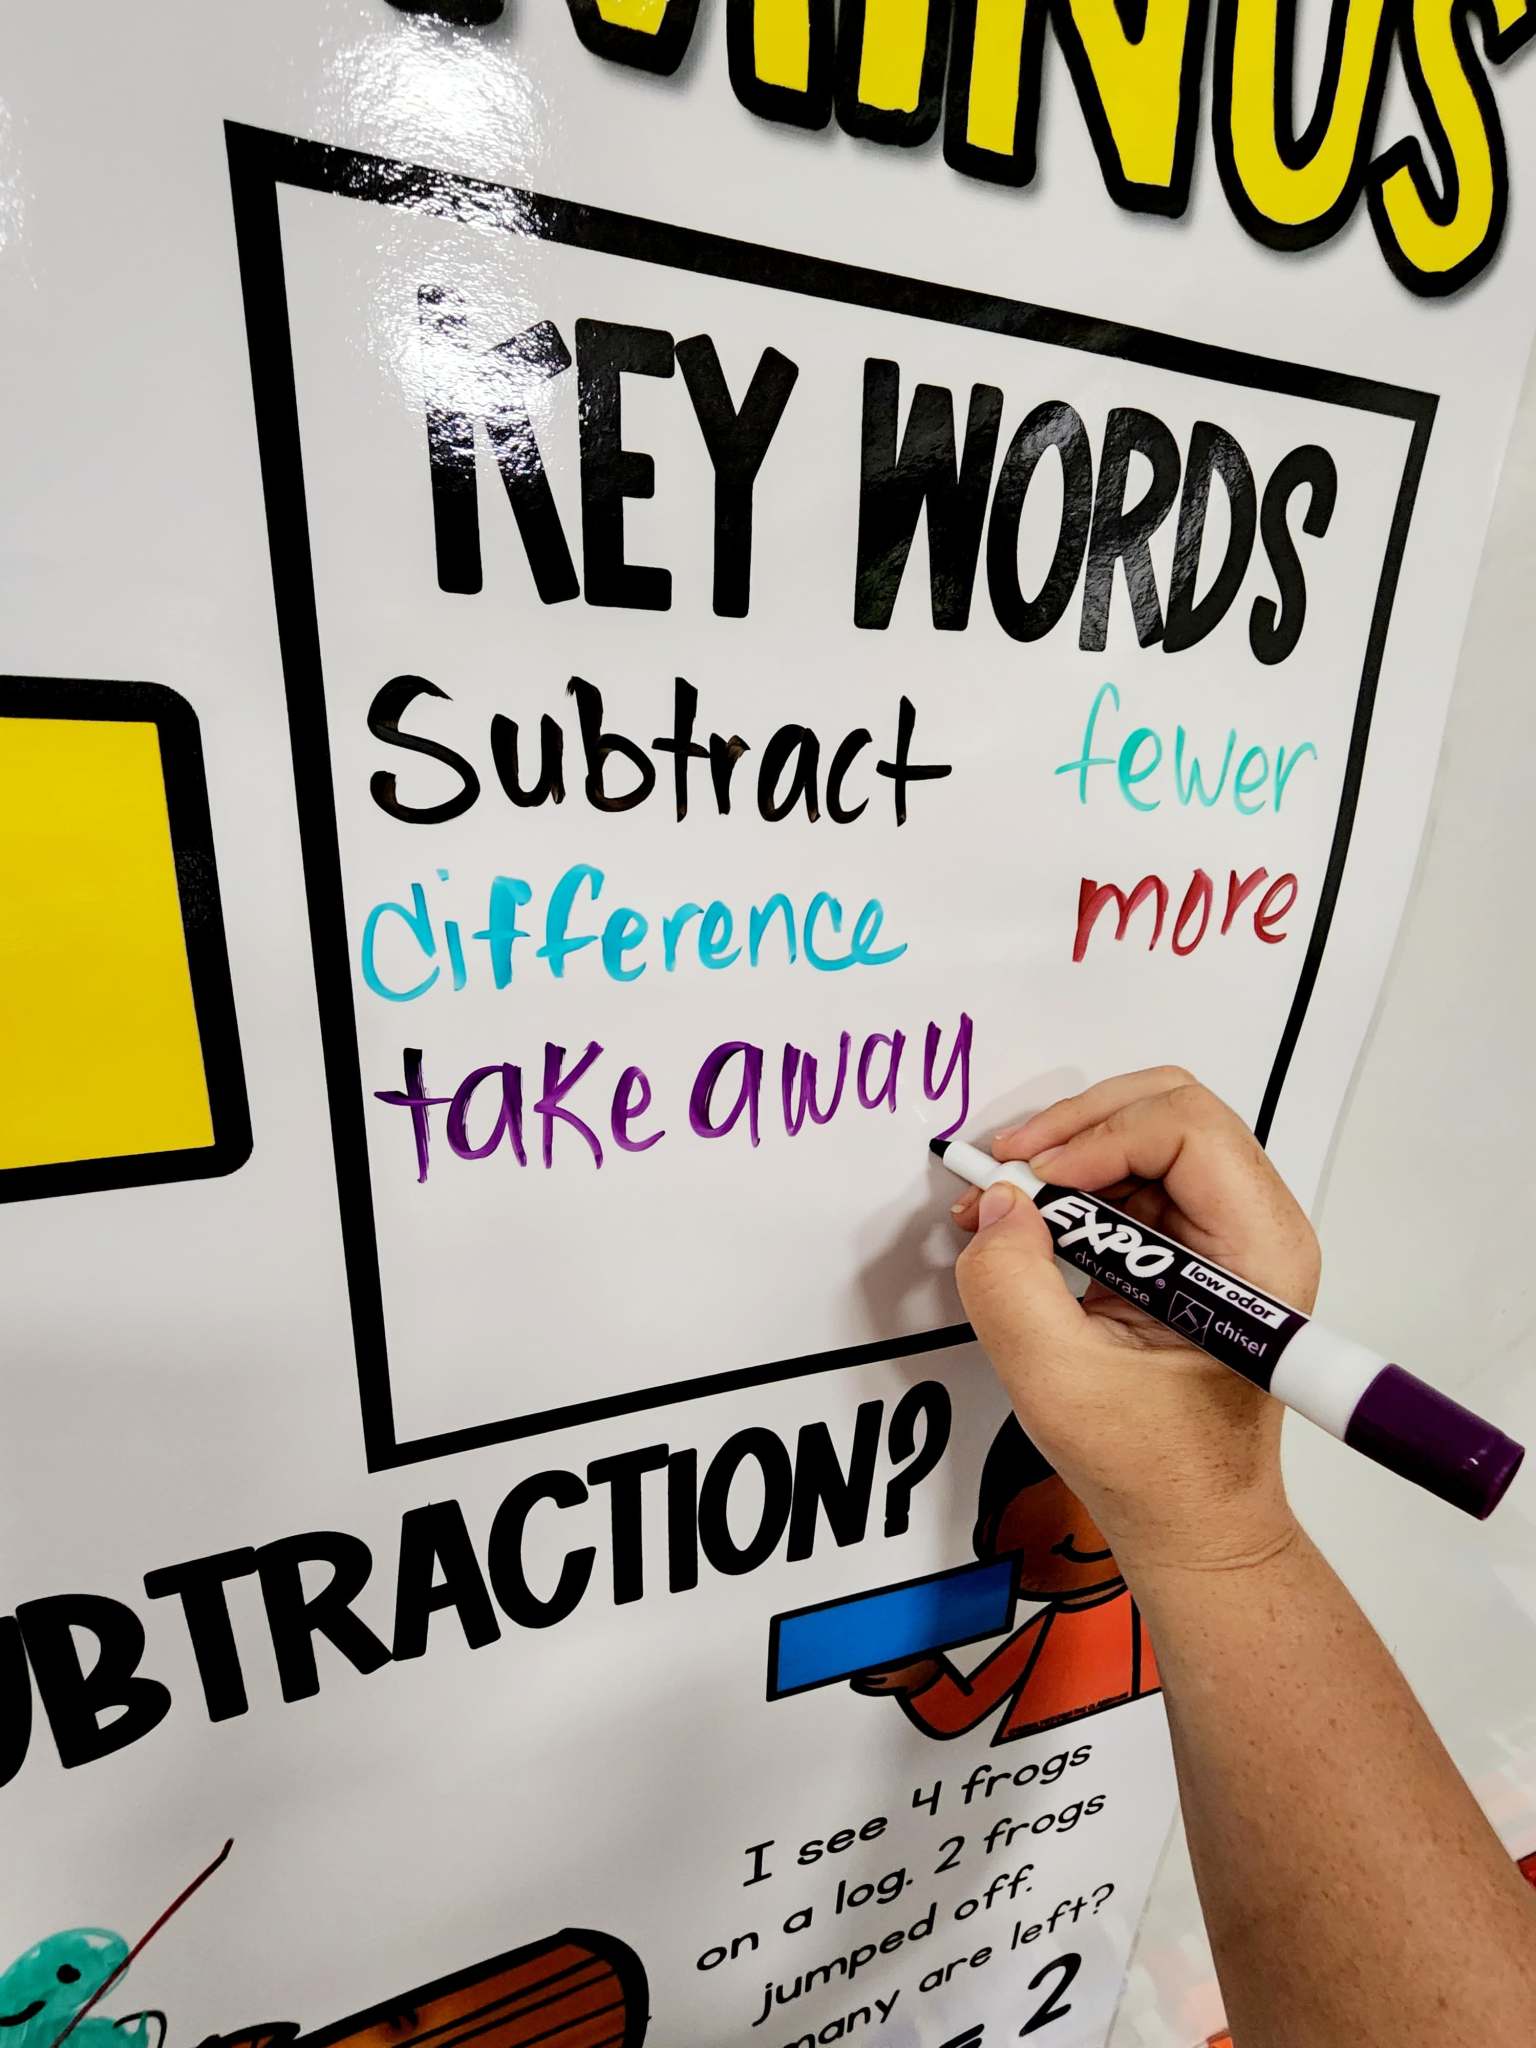 MINUS
KEY WORDS
Subtract fewer
difference more
take away
EXPO® low odor
dry erase chisel
UBTRACTION?
I see 4 frogs
on a log. 2 frogs
jumped off.
many are left?
= 2